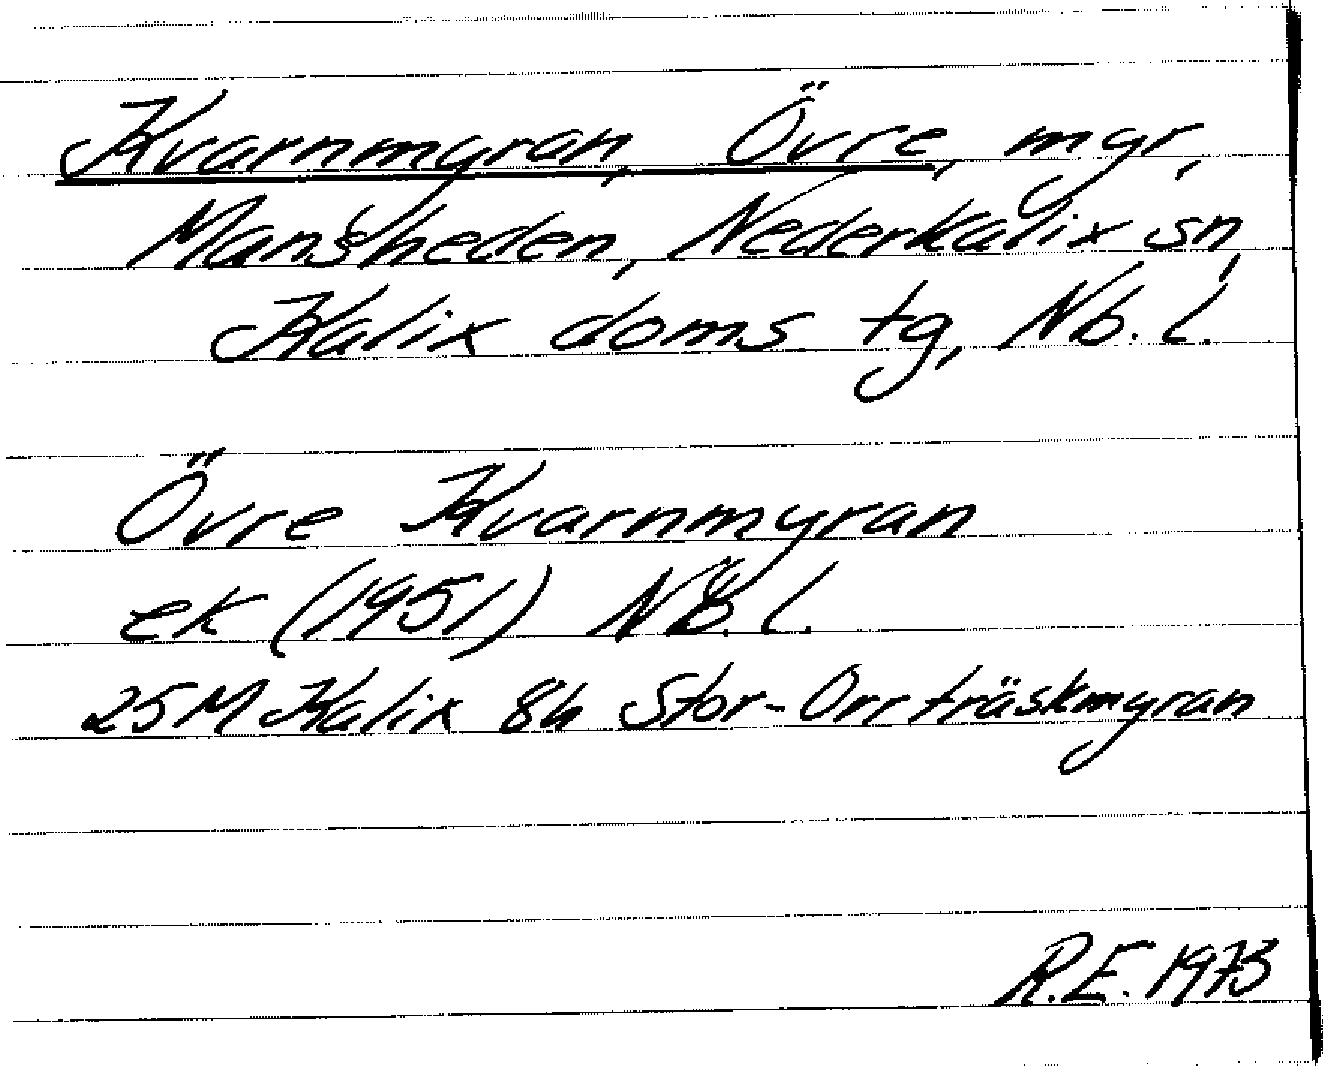 Kvarnmyran, Övre, myr,
Månsheden, Nederkalix sn,
Kalix doms tg, Nb. l.
Övre Kvarnmyran
ek (1951) Nb. l.
25M Kalix 8h Stor-Orrträskmyran
R.E. 1973